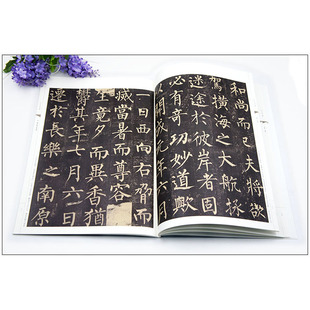 和尚而已夫將欲
駕橫海之大航拯
迷途於彼岸者固
必有奇功妙道歟
以開成元年六月
一日西向右脅而
滅當暑而尊容
生竟夕而異香猶
鬱其年七月六日
遷於長樂之南原